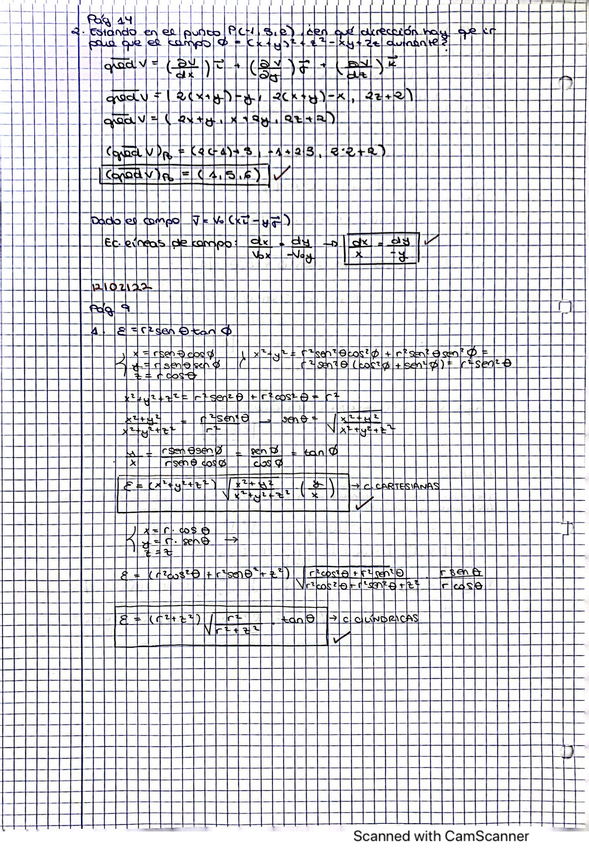 Pág 14
2. Estando en el punto P(-1, 3, 2), ¿en qué dirección hay que ir
para que el campo Φ = (x+y)² + z² - xy + 2z aumente?
grad V = (∂V/dx) i + (∂V/∂y) j + (∂V/dz) k
grad V = (2(x+y)-y, 2(x+y)-x, 2z+2)
grad V = (2x+y, x+2y, 2z+2)
(grad V)P₀ = (2(-1)+3, -1+2·3, 2·2+2)
(grad V)P₀ = (1, 5, 6) ✓
Dado el campo v = V₀(xi - yj)
Ec. líneas de campo: dx/V₀x = dy/-V₀y → dx/x = dy/-y ✓
12/02/22
Pág 9
1. ε = r² sen θ tan ϕ
x = r sen θ cos ϕ
y = r sen θ sen ϕ
z = r cos θ
x²+y² = r² sen²θ cos²ϕ + r² sen²θ sen²ϕ =
r² sen²θ (cos²ϕ + sen²ϕ) = r² sen²θ
x²+y²+z² = r² sen²θ + r² cos²θ = r²
x²+y²/x²+y²+z² = r² sen²θ/r² → sen θ = √(x²+y²/x²+y²+z²)
y/x = r sen θ sen ϕ/r sen θ cos ϕ = sen ϕ/cos ϕ = tan ϕ
ε = (x²+y²+z²) √(x²+y²/x²+y²+z²) · (y/x) → C CARTESIANAS ✓
x = r · cos θ
y = r · sen θ →
z = z
ε = (r² cos²θ + r² sen θ² + z²) √(r² cos²θ + r² sen²θ/r² cos²θ + r² sen²θ + z²) · r sen θ/r cos θ
ε = (r²+z²) √(r²/r²+z²) · tan θ → C CILÍNDRICAS ✓
Scanned with CamScanner